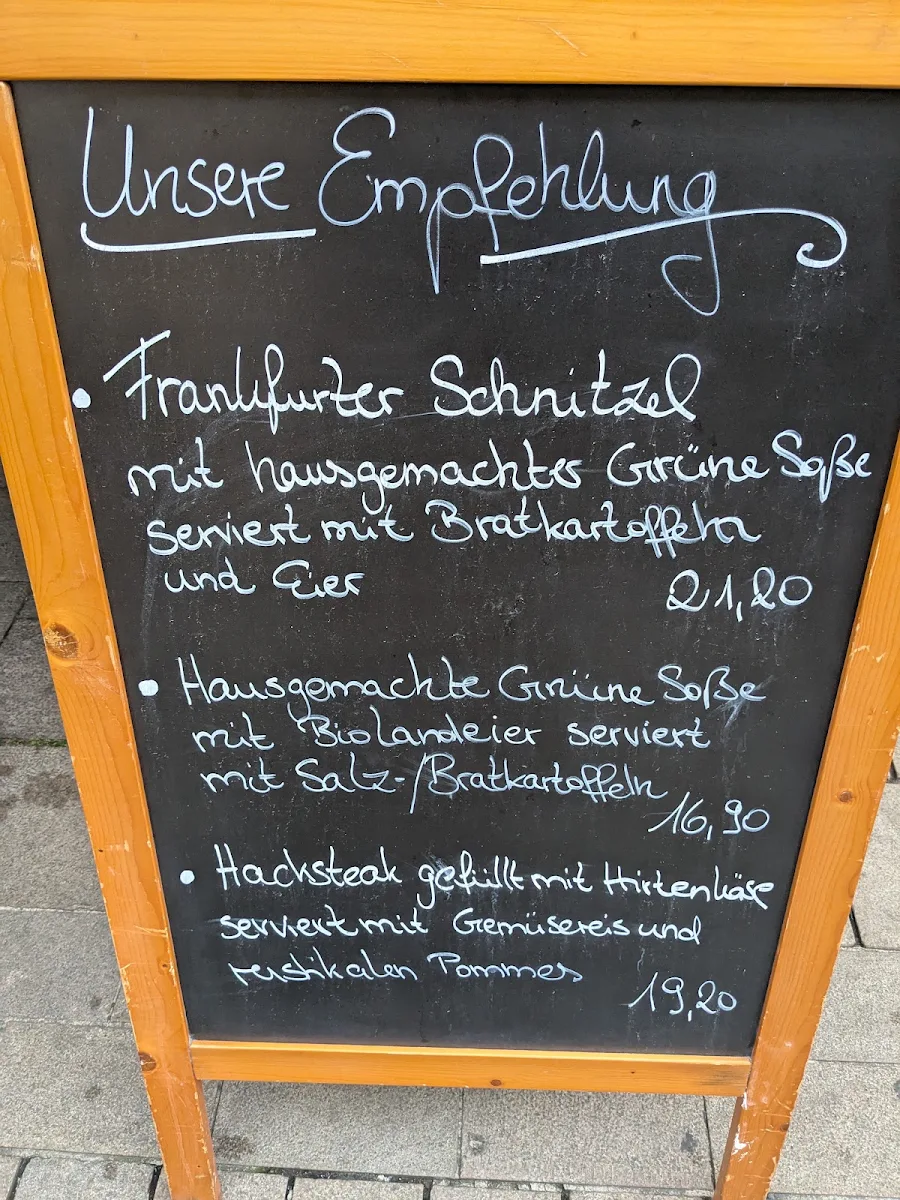 Unsere Empfehlung
• Frankfurter Schnitzel
mit hausgemachter Grüne Soße
serviert mit Bratkartoffeln
und Eier 21,20
• Hausgemachte Grüne Soße
mit Biolandeier serviert
mit Salz-/Bratkartoffeln
16,90
• Hacksteak gefüllt mit Hirtenkäse
serviert mit Gemüsereis und
rustikalen Pommes
19,20